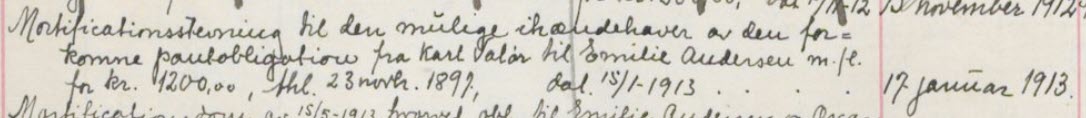 13 november 1912
Mortificationsstevning til den mulige ihændehaver av den for=
komne pantobligation fra Karl Valär til Emilie Andersen m. fl.
for kr. 1200,00, thl. 23 novbr. 1897, dat. 15/1-1913 . . . . 17 januar 1913.
15/5-1913 til Emilie Andersen